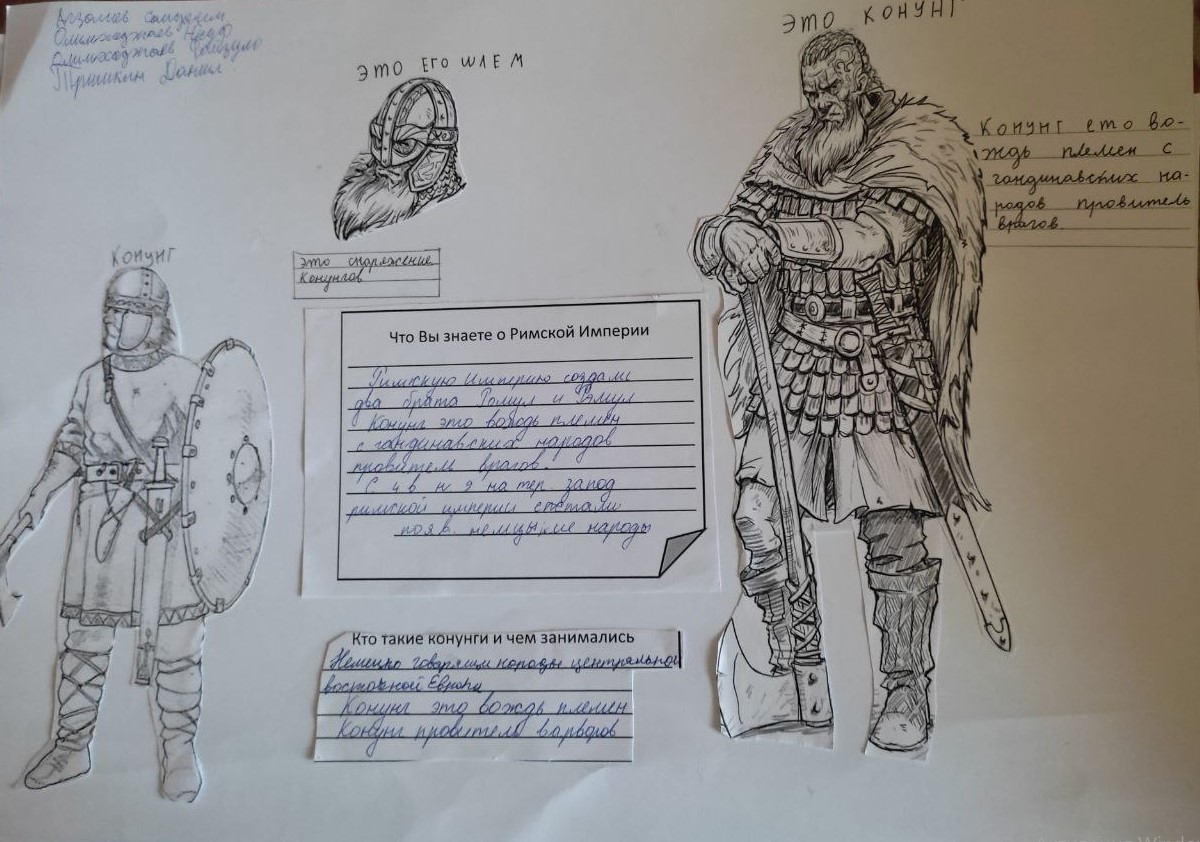 Олимхаджаев
Олимхаджаев
Тришкин Данил
ЭТО ЕГО ШЛЕМ
ЭТО КОНУНГ
Конунг ето во-
ждь племен с
гандинавских на-
родов провитель
врагов.
КОНУНГ
Это снаряжение
Конунгов
Что Вы знаете о Римской Империи
Римскую Империю создали
два брата Ромул и Рэмул
Конунг это вождь племен
с гандинавских народов
провитель врагов.
С 4 в н э на тер. запод
римской империи стстали
появ. немецкие народы
Кто такие конунги и чем занимались
Немецко говорящим народы центральной
восточной Европы
Конунг это вождь племен
Конунг провитель варворов